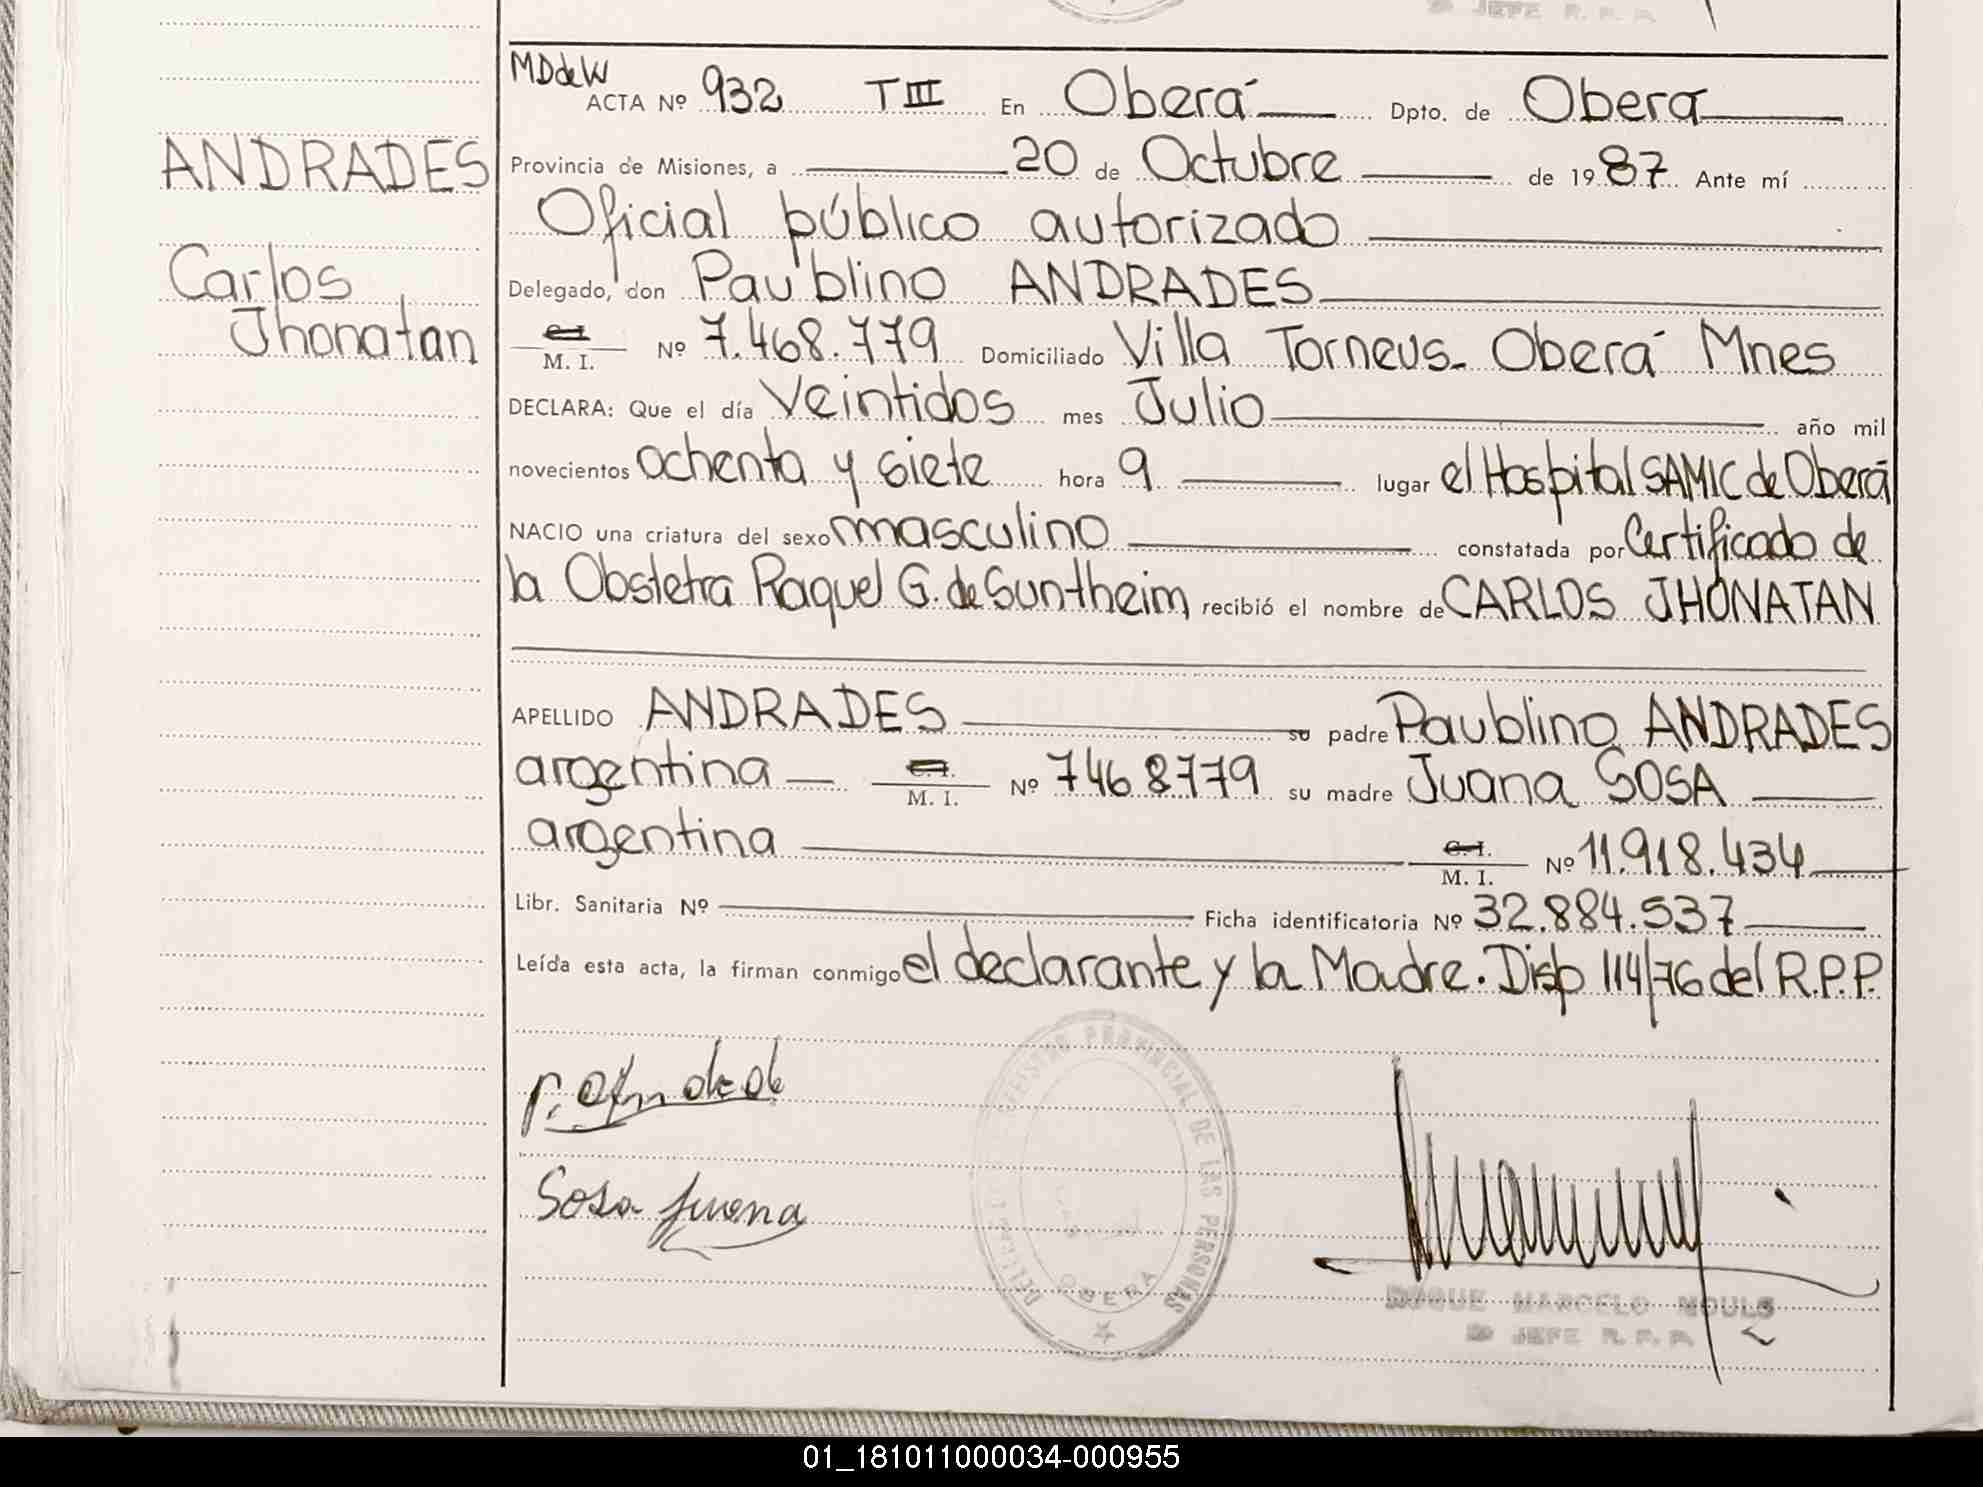 JEFE R. P. P.
MDdeW
ACTA Nº 932 T III En Oberá Dpto. de Oberá
ANDRADES
Provincia de Misiones, a 20 de Octubre de 1987 Ante mí
Oficial público autorizado
Carlos
Delegado, don Paublino ANDRADES
Jhonatan
C.I.
M. I. Nº 7.468.779 Domiciliado Villa Torneus. Oberá Mnes
DECLARA: Que el día Veintidos mes Julio año mil
novecientos ochenta y siete hora 9 lugar el Hospital SAMIC de Oberá
NACIO una criatura del sexo masculino constatada por Certificado de
la Obstetra Raquel G. de Suntheim recibió el nombre de CARLOS JHONATAN
APELLIDO ANDRADES su padre Paublino ANDRADES
argentina C.I. M. I. Nº 7468779 su madre Juana SOSA
argentina C.I. M. I. Nº 11.918.434
Libr. Sanitaria Nº Ficha identificatoria Nº 32.884.537
Leída esta acta, la firman conmigo el declarante y la Madre. Disp 114/76 del R.P.P.
REGISTRO PROVINCIAL DE LAS PERSONAS
OBERA
Sosa Juana
ROQUE MARCELO
JEFE R. P. P.
01_181011000034-000955